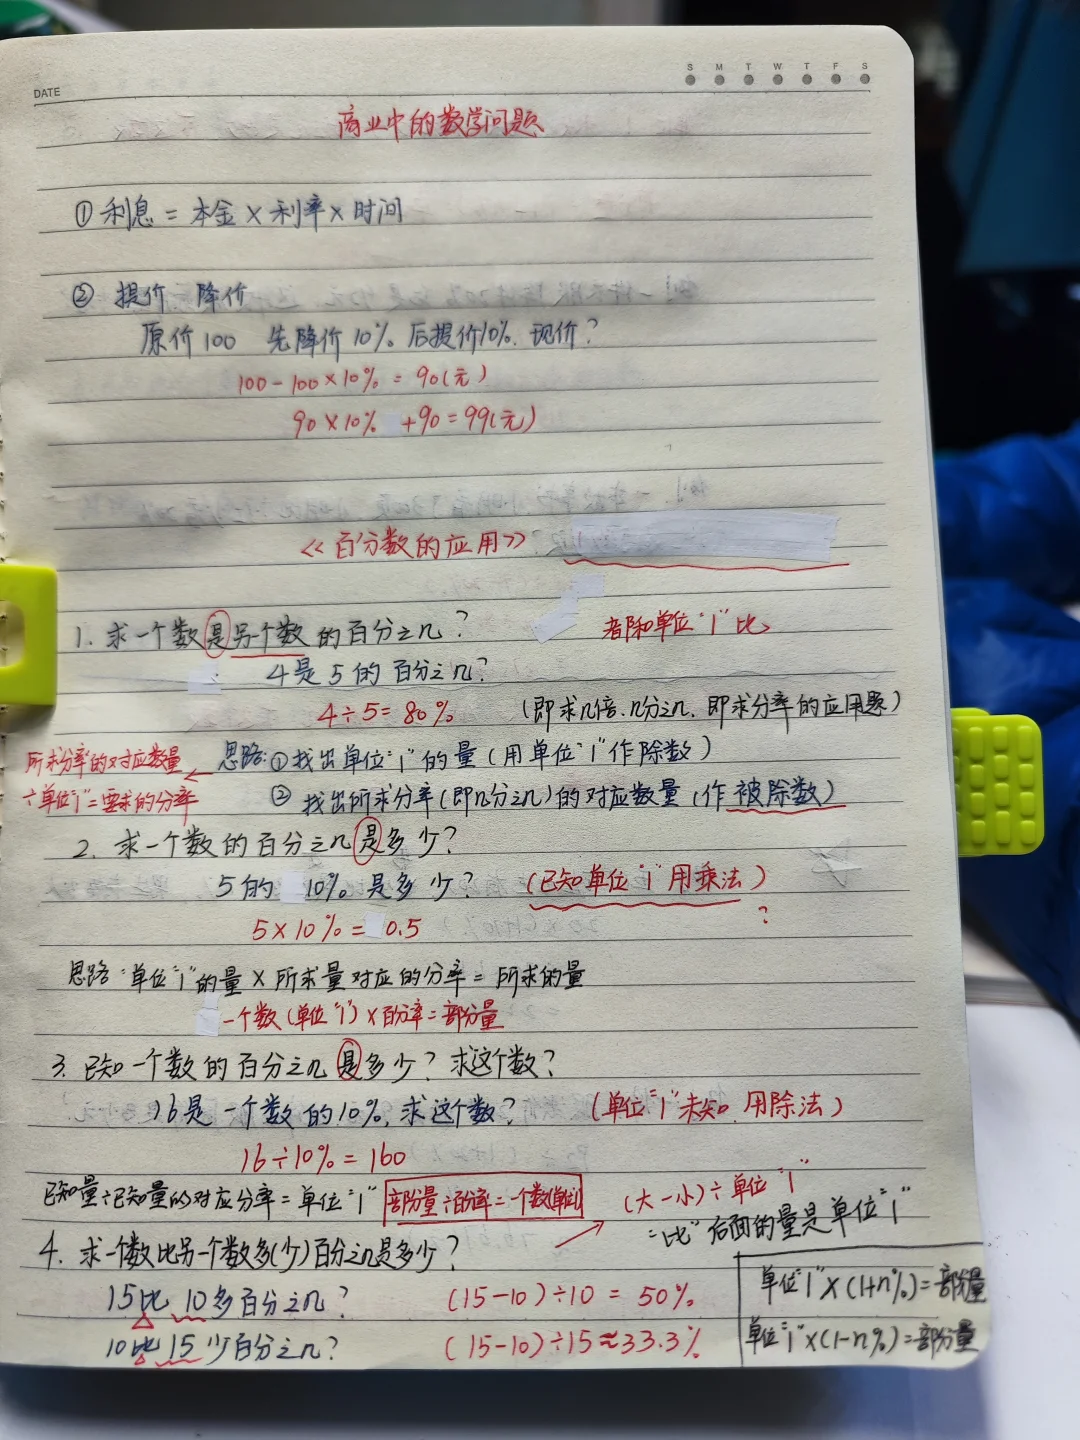 DATE
S M T W T F S
商业中的数学问题
①利息=本金×利率×时间
② 提价 降价
原价100 先降价10% 后提价10%. 现价?
100-100×10%=90(元)
90×10% +90=99(元)
《百分数的应用》
1. 求一个数是另一个数的百分之几?
都和单位"1"比
4是5的百分之几?
4÷5=80%
(即求几倍、几分之几,即求分率的应用题)
所求分率的对应数量
÷单位"1"=要求的分率
思路:①找出单位"1"的量(用单位"1"作除数)
② 找出所求分率(即几分之几)的对应数量(作被除数)
2. 求一个数的百分之几是多少?
5的 10% 是多少? (已知单位"1"用乘法)
?
5×10%= 0.5
思路:单位"1"的量×所求量对应的分率=所求的量
一个数(单位"1")×百分率=部分量
3. 已知一个数的百分之几是多少?求这个数?
16是一个数的10%,求这个数? (单位"1"未知.用除法)
16÷10%=160
已知量÷已知量的对应分率=单位"1"
部分量÷百分率=一个数(单位1)
(大-小)÷单位"1"
"比"后面的量是单位"1"
4. 求一个数比另一个数多(少)百分之几是多少?
15比10多百分之几? (15-10)÷10=50%
10比15少百分之几? (15-10)÷15≈33.3%
单位"1"×(1+n%)=部分量
单位"1"×(1-n%)=部分量